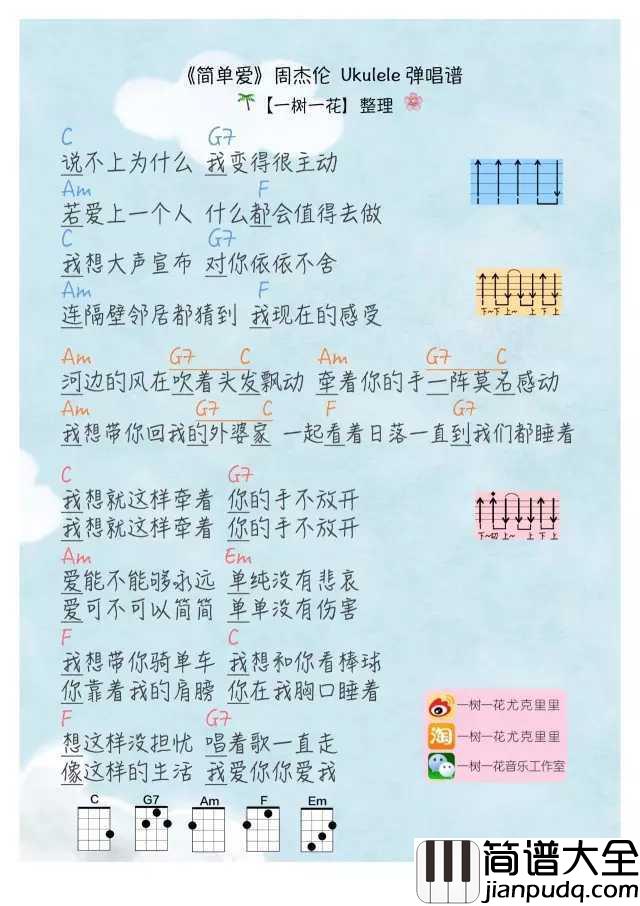 《简单爱》周杰伦 Ukulele 弹唱谱
【一树一花】整理
C G7
说不上为什么 我变得很主动
Am F
若爱上一个人 什么都会值得去做
C G7
我想大声宣布 对你依依不舍
Am F
连隔壁邻居都猜到 我现在的感受
下~下 上~ 上 下 上
Am G7 C Am G7 C
河边的风在吹着头发飘动 牵着你的手一阵莫名感动
Am G7 C F G7
我想带你回我的外婆家 一起看着日落一直到我们都睡着
C G7
我想就这样牵着 你的手不放开
我想就这样牵着 你的手不放开
下~切 上~ 上 下 上
Am Em
爱能不能够永远 单纯没有悲哀
爱可不可以简简 单单没有伤害
F C
我想带你骑单车 我想和你看棒球
你靠着我的肩膀 你在我胸口睡着
F G7
想这样没担忧 唱着歌一直走
像这样的生活 我爱你你爱我
一树一花尤克里里
淘 一树一花尤克里里
一树一花音乐工作室
C G7 Am F Em
简谱大全
jianpudq.com